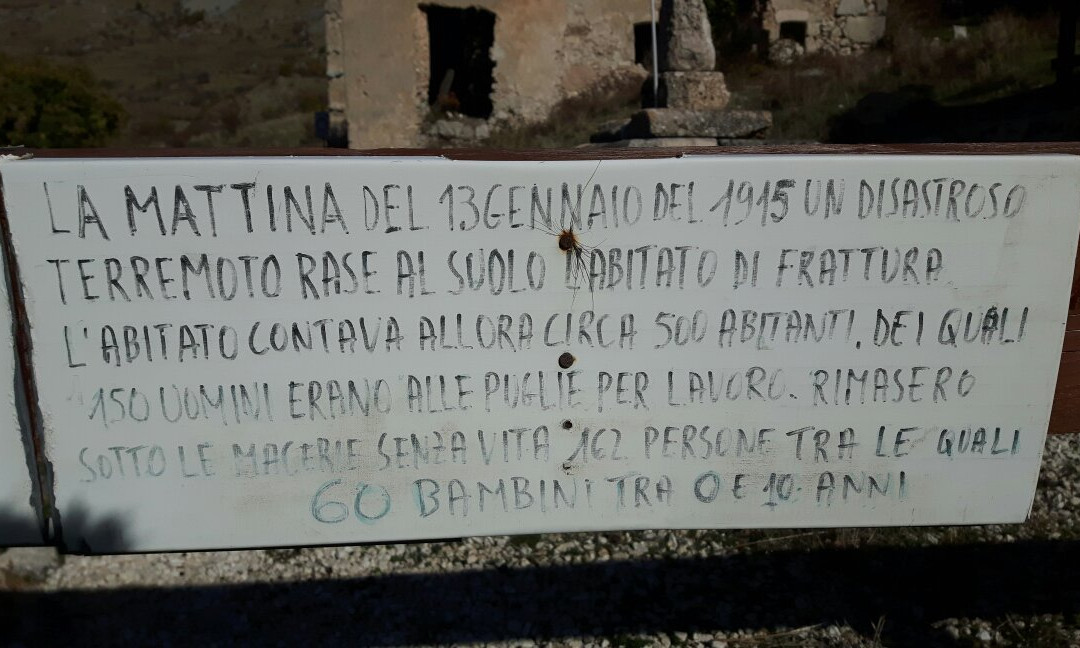 LA MATTINA DEL 13 GENNAIO DEL 1915 UN DISASTROSO
TERREMOTO RASE AL SUOLO L'ABITATO DI FRATTURA
L'ABITATO CONTAVA ALLORA CIRCA 500 ABITANTI, DEI QUALI
150 UOMINI ERANO ALLE PUGLIE PER LAVORO. RIMASERO
SOTTO LE MACERIE SENZA VITA 162 PERSONE TRA LE QUALI
60 BAMBINI TRA 0 E 10 ANNI